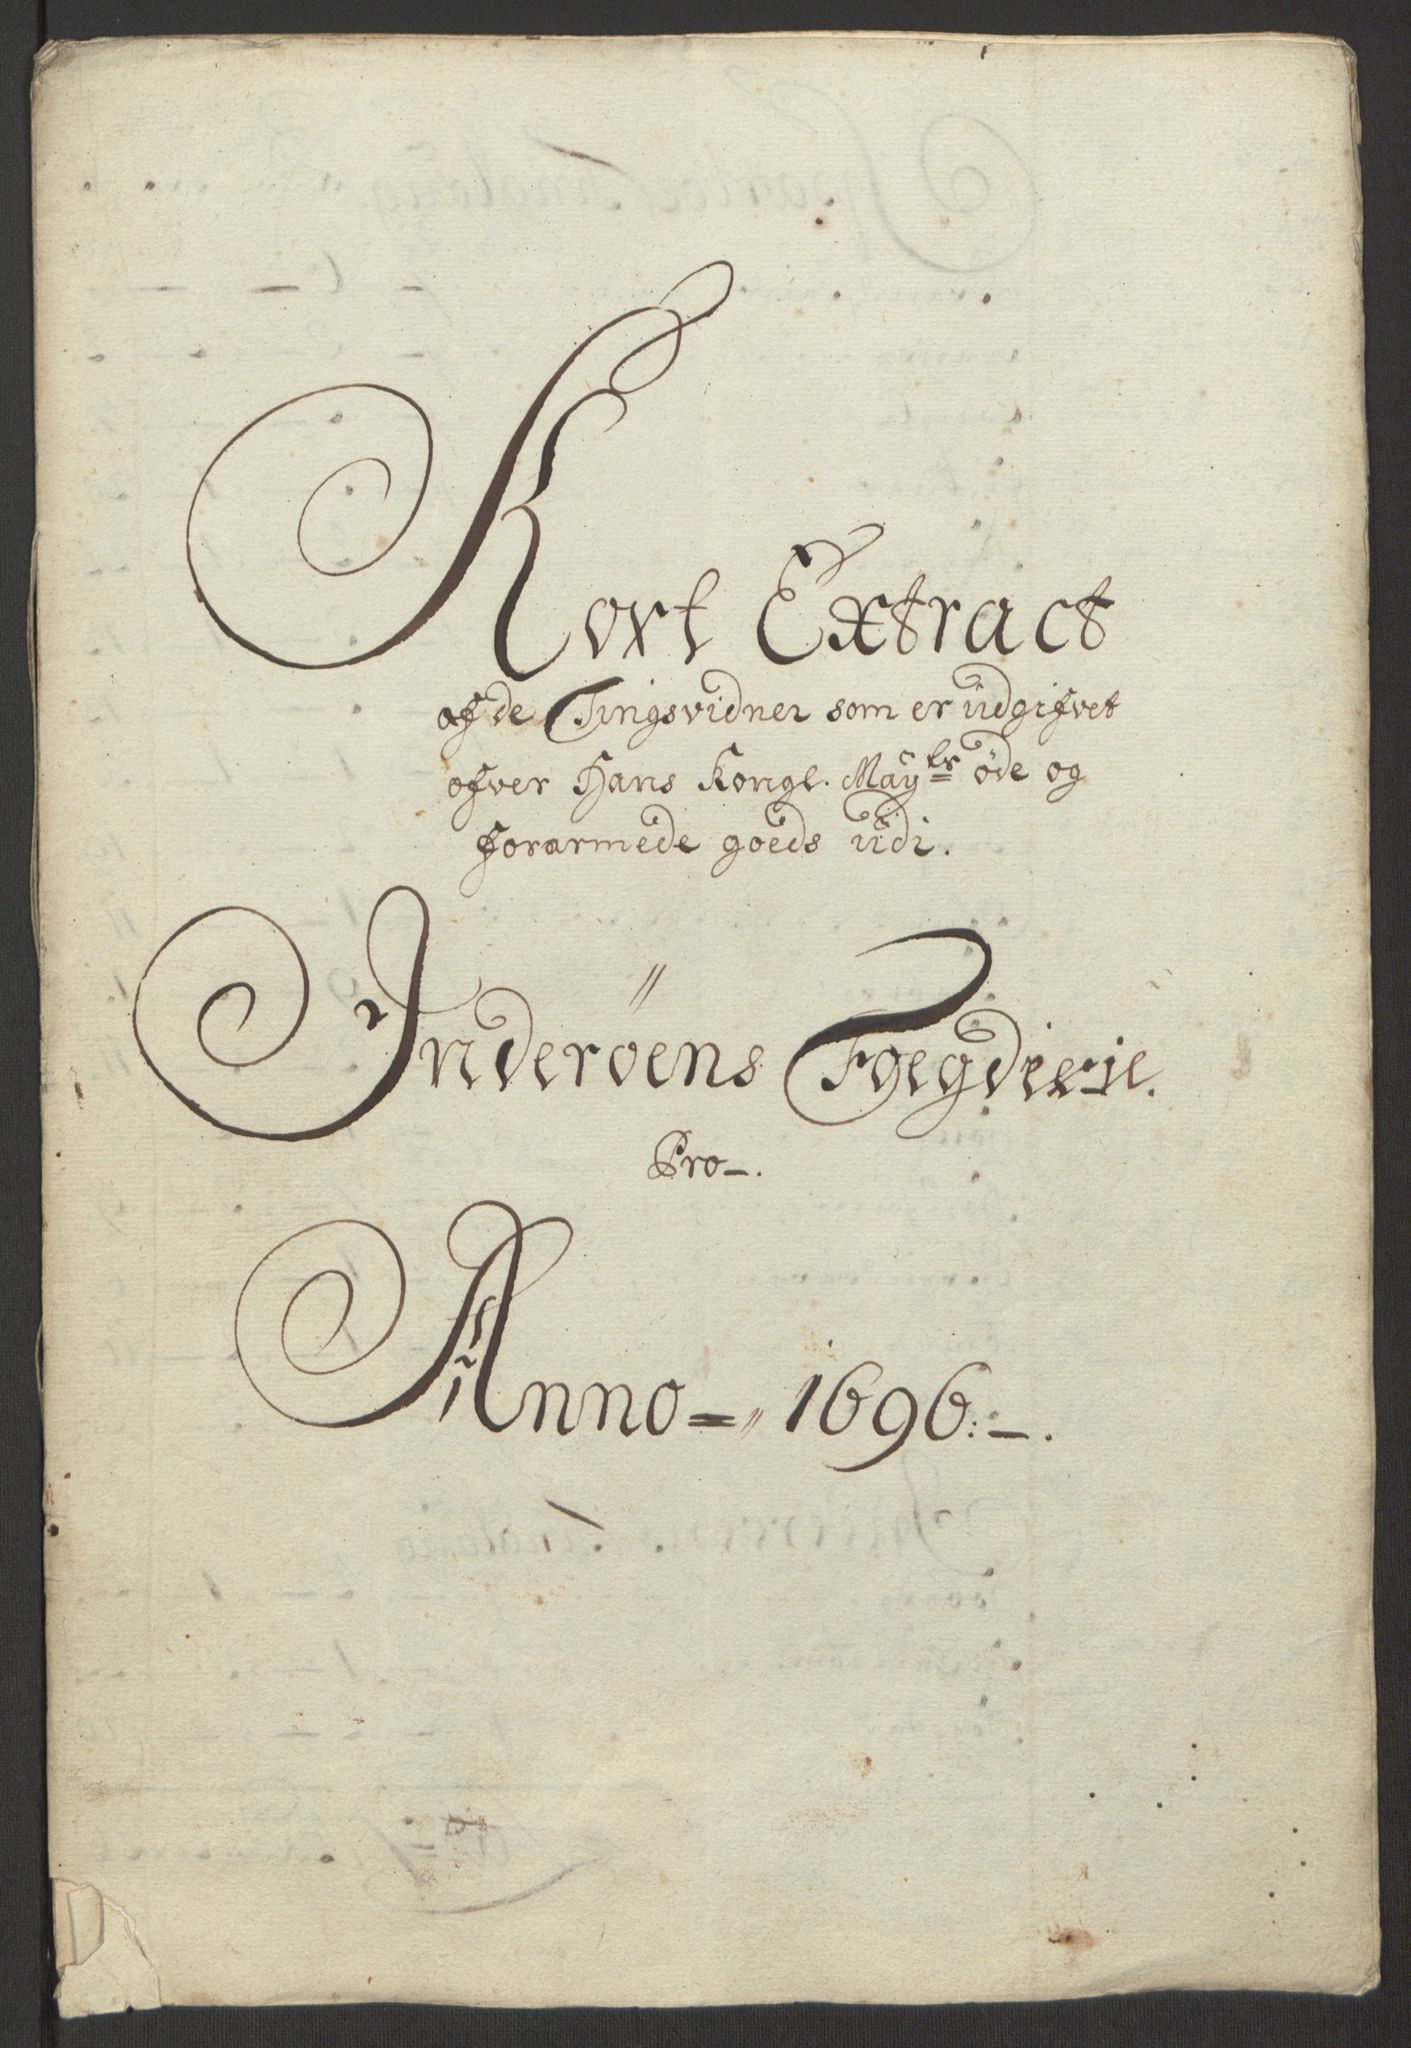 Kort Extract
af de Tingsvidner som er üdgifvet
ofver Hans Kongl. Mayᵗᵗˢ øde og
forarmede goeds üdi.
Inderöens Foegderie.
Pro-.
Anno = 1696:-.